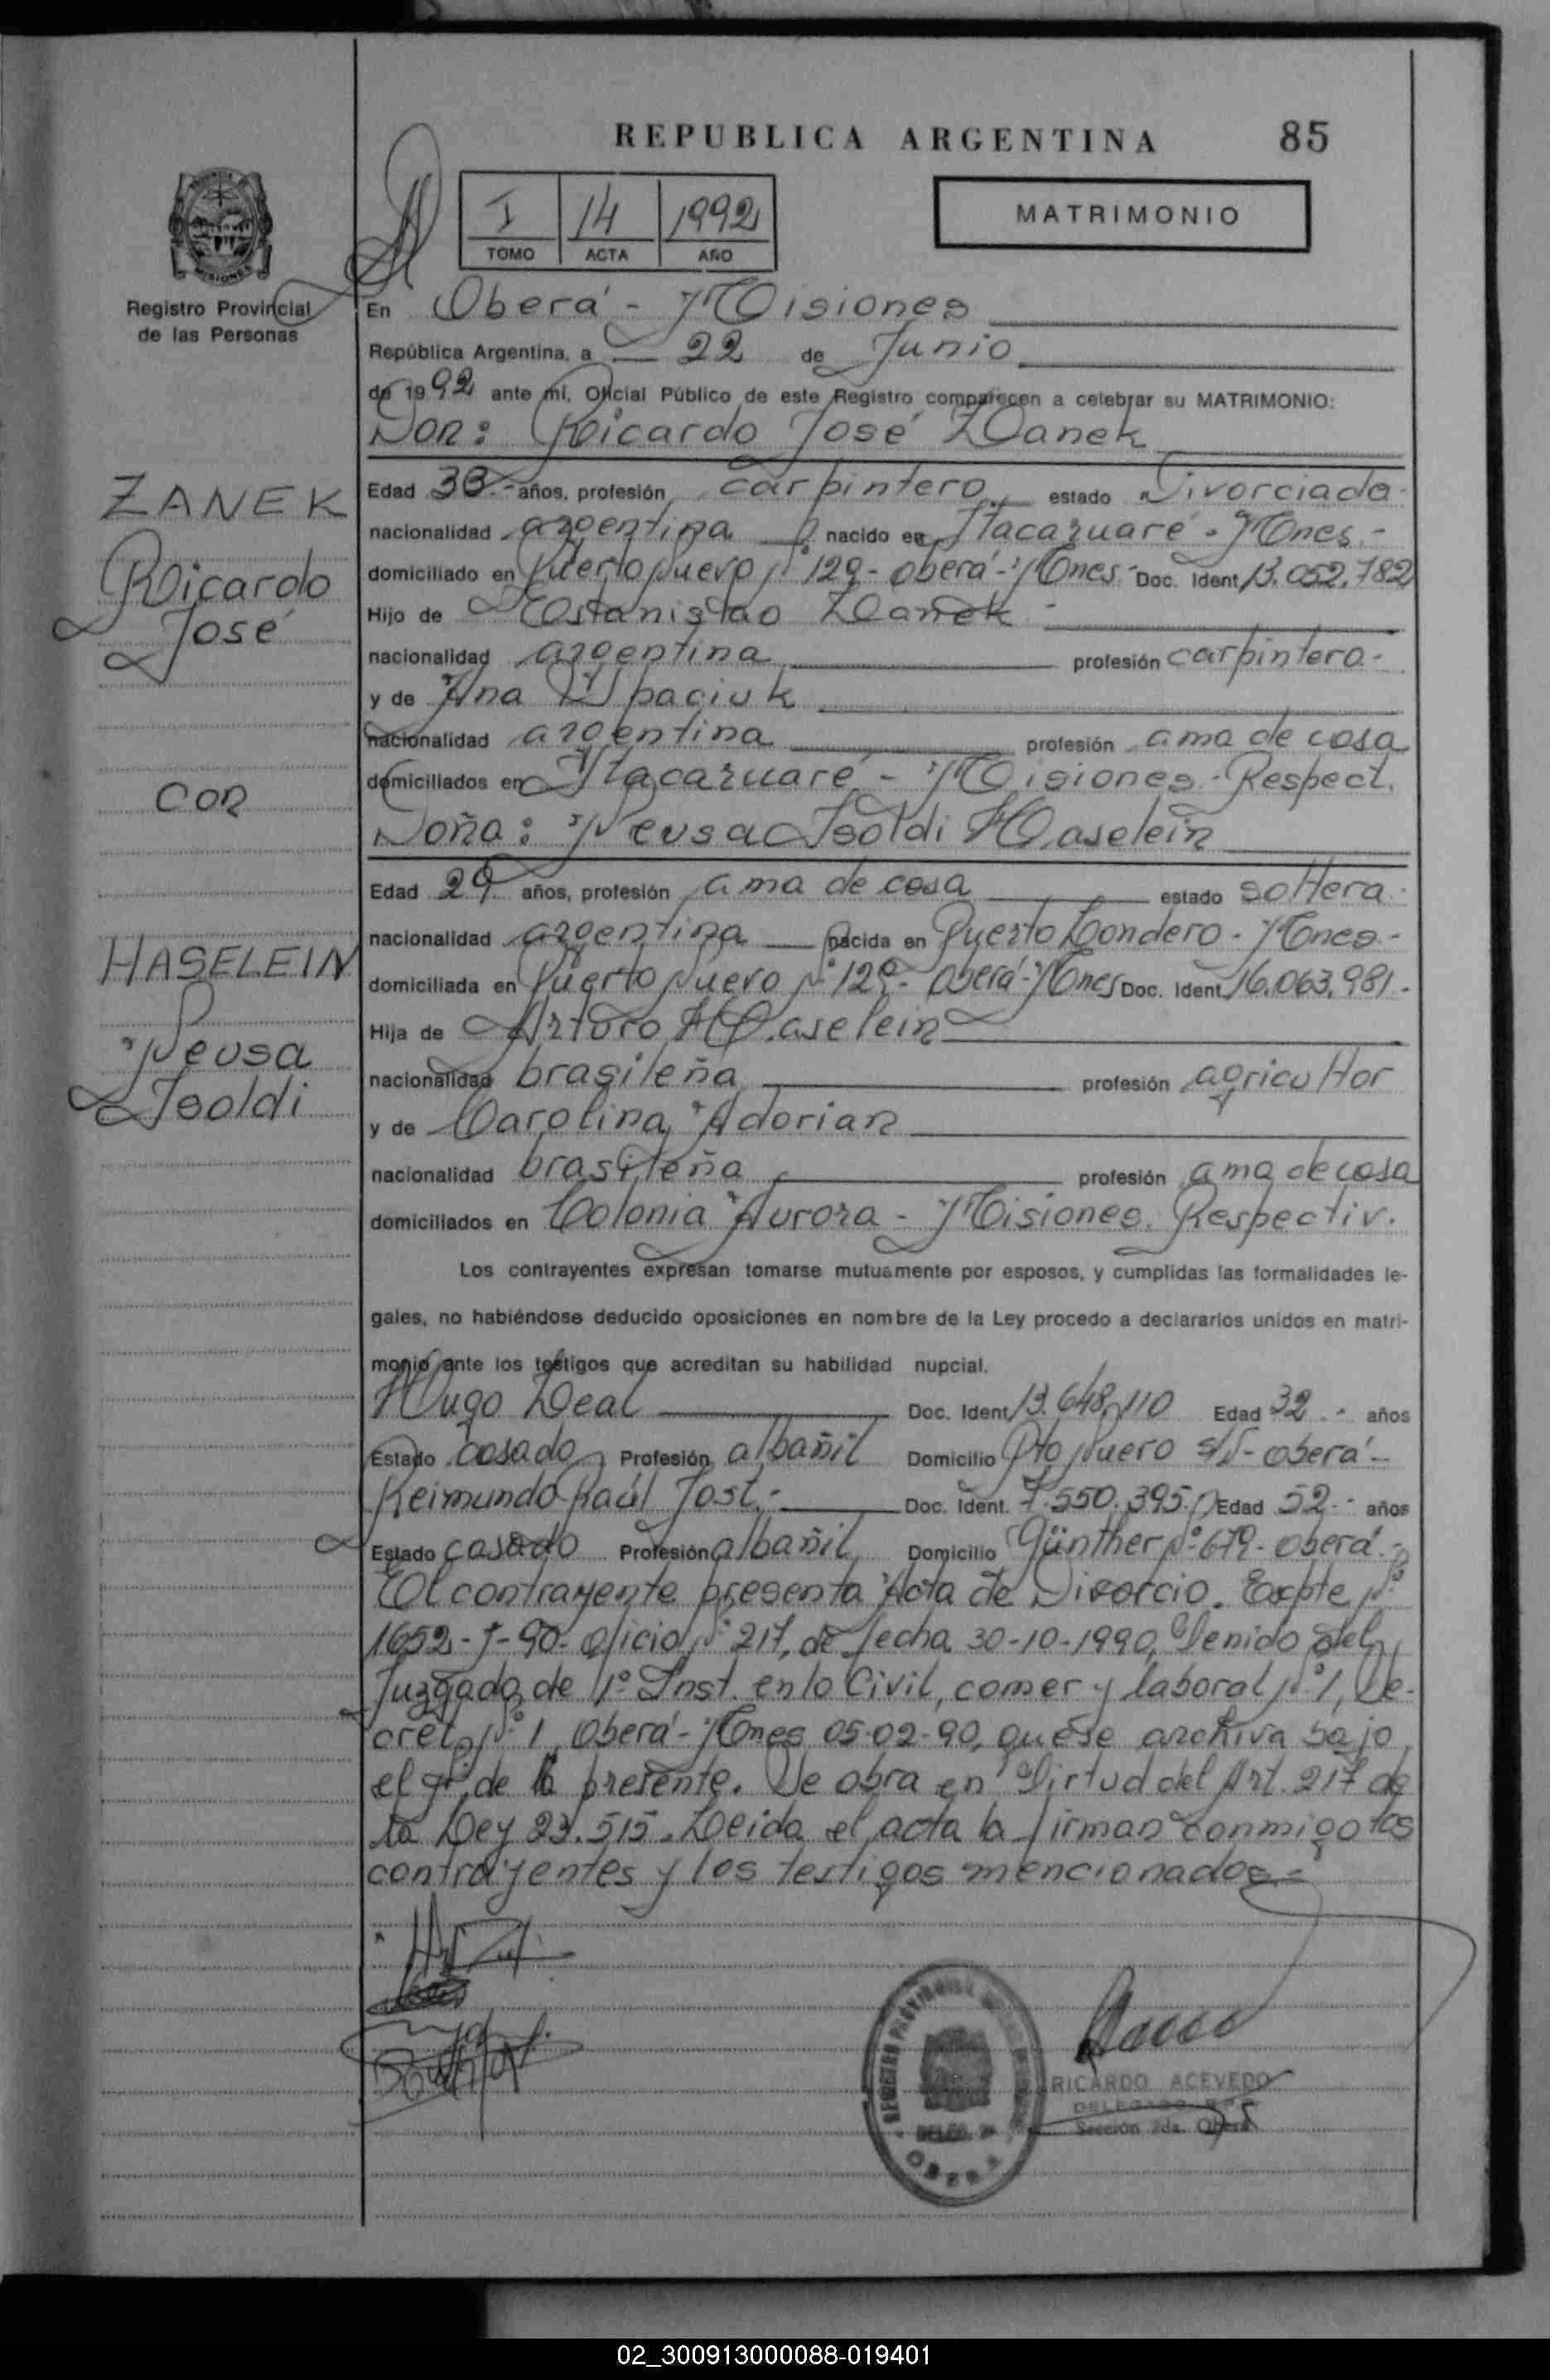 REPUBLICA ARGENTINA 85
I 14 1992
TOMO ACTA AÑO
MATRIMONIO
MISIONES
Registro Provincial
de las Personas
En Oberá - Misiones
República Argentina, a 22 de Junio
de 1992 ante mí, Oficial Público de este Registro comparecen a celebrar su MATRIMONIO:
Don: Ricardo José Zanek
ZANEK
Ricardo
José
Edad 33.- años, profesión carpintero estado Divorciado
nacionalidad argentina nacido en Itacaruaré - Mnes.-
domiciliado en Puerto Nuevo Nº 129 - Oberá - Mnes.- Doc. Ident. 13.052.782
Hijo de Estanislao Zanek
nacionalidad argentina profesión carpintero.-
y de Ana Spaciuk
nacionalidad argentina profesión ama de casa
domiciliados en Itacaruaré - Misiones. Respect.
con
Doña: Neusa Isoldi Haselein
Edad 29 años, profesión ama de casa estado soltera.
nacionalidad argentina nacida en Puerto Londero - Mnes.-
domiciliada en Puerto Nuevo Nº 129 - Oberá - Mnes Doc. Ident. 16.063.981.
HASELEIN
Neusa
Isoldi
Hija de Arturo Haselein
nacionalidad brasileña profesión agricultor
y de Carolina Adorian
nacionalidad brasileña profesión ama de casa
domiciliados en Colonia Aurora - Misiones. Respectiv.
Los contrayentes expresan tomarse mutuamente por esposos, y cumplidas las formalidades le-
gales, no habiéndose deducido oposiciones en nombre de la Ley procedo a declararlos unidos en matri-
monio ante los testigos que acreditan su habilidad nupcial.
Hugo Leal Doc. Ident. 13.648.110 Edad 32.- años
Estado casado Profesión albañil Domicilio Pto Nuevo s/N - Oberá -
Reimundo Raúl Jost.- Doc. Ident. 7.550.395. Edad 52.- años
Estado casado Profesión albañil Domicilio Günther Nº 679 - Oberá.-
El contrayente presenta Acta de Divorcio. Expte Nº
1652-J-90- oficio Nº 217, de fecha 30-10-1990, Venido del
Juzgado de 1º Inst. en lo Civil, comer y laboral Nº 1, Se-
creta Nº 1 Oberá - Mnes 05-02-90, que se archiva bajo
el de la presente. Se obra en Virtud del Art. 217 de
la Ley 23.515. Leida el acta la firman conmigo los
contrayentes y los testigos mencionados.-
RICARDO ACEVEDO
DELEGADO
Sección 2da. Oberá
OBERA
02_300913000088-019401